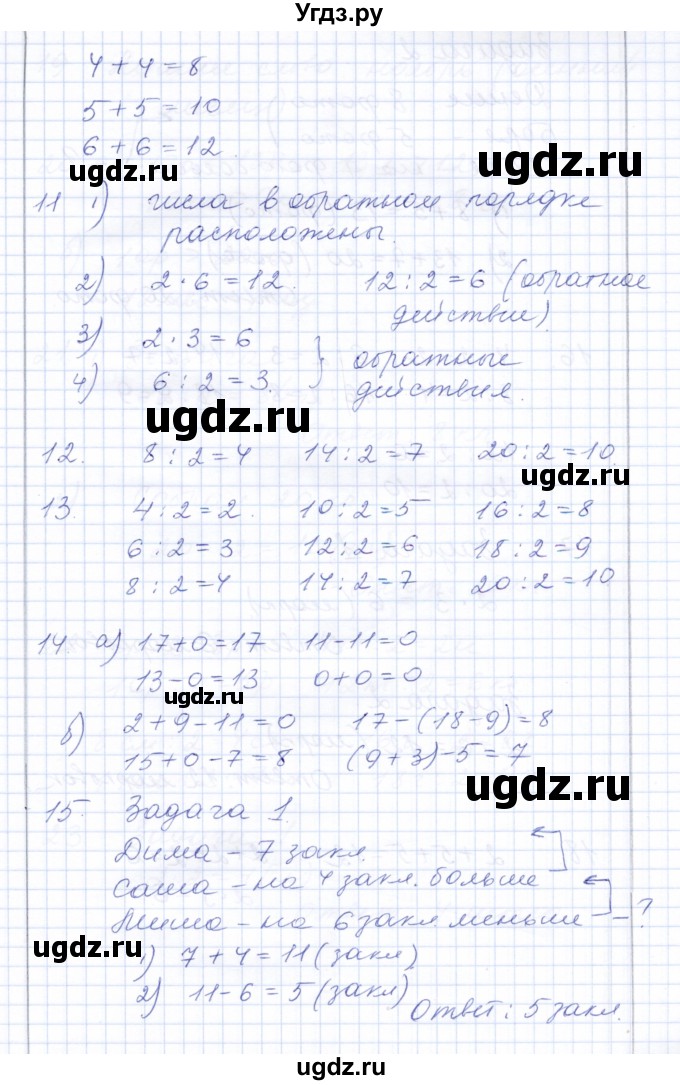 Угдз.ру
4 + 4 = 8
5 + 5 = 10
6 + 6 = 12
ugdz.ru
ugdz.ru
11 1) числа в обратном порядке
расположены.
2) 2 · 6 = 12. 12 : 2 = 6 (обратное
действие).
3) 2 · 3 = 6
4) 6 : 2 = 3. } обратные
действия.
ugdz.ru
12. 8 : 2 = 4 14 : 2 = 7 20 : 2 = 10
ugdz.ru
13. 4 : 2 = 2. 10 : 2 = 5 16 : 2 = 8
6 : 2 = 3 12 : 2 = 6 18 : 2 = 9
8 : 2 = 4 14 : 2 = 7 20 : 2 = 10
14. а) 17 + 0 = 17 11 - 11 = 0
13 - 0 = 13 0 + 0 = 0
ugdz.ru
б) 2 + 9 - 11 = 0 17 - (18 - 9) = 8
15 + 0 - 7 = 8 (9 + 3) - 5 = 7
ugdz.ru
15. Задача 1.
Дима - 7 закл.
Саша - на 4 закл. больше
Миша - на 6 закл меньше - ?
ugdz.ru
1) 7 + 4 = 11 (закл)
2) 11 - 6 = 5 (закл)
Ответ: 5 закл.
ugdz.ru